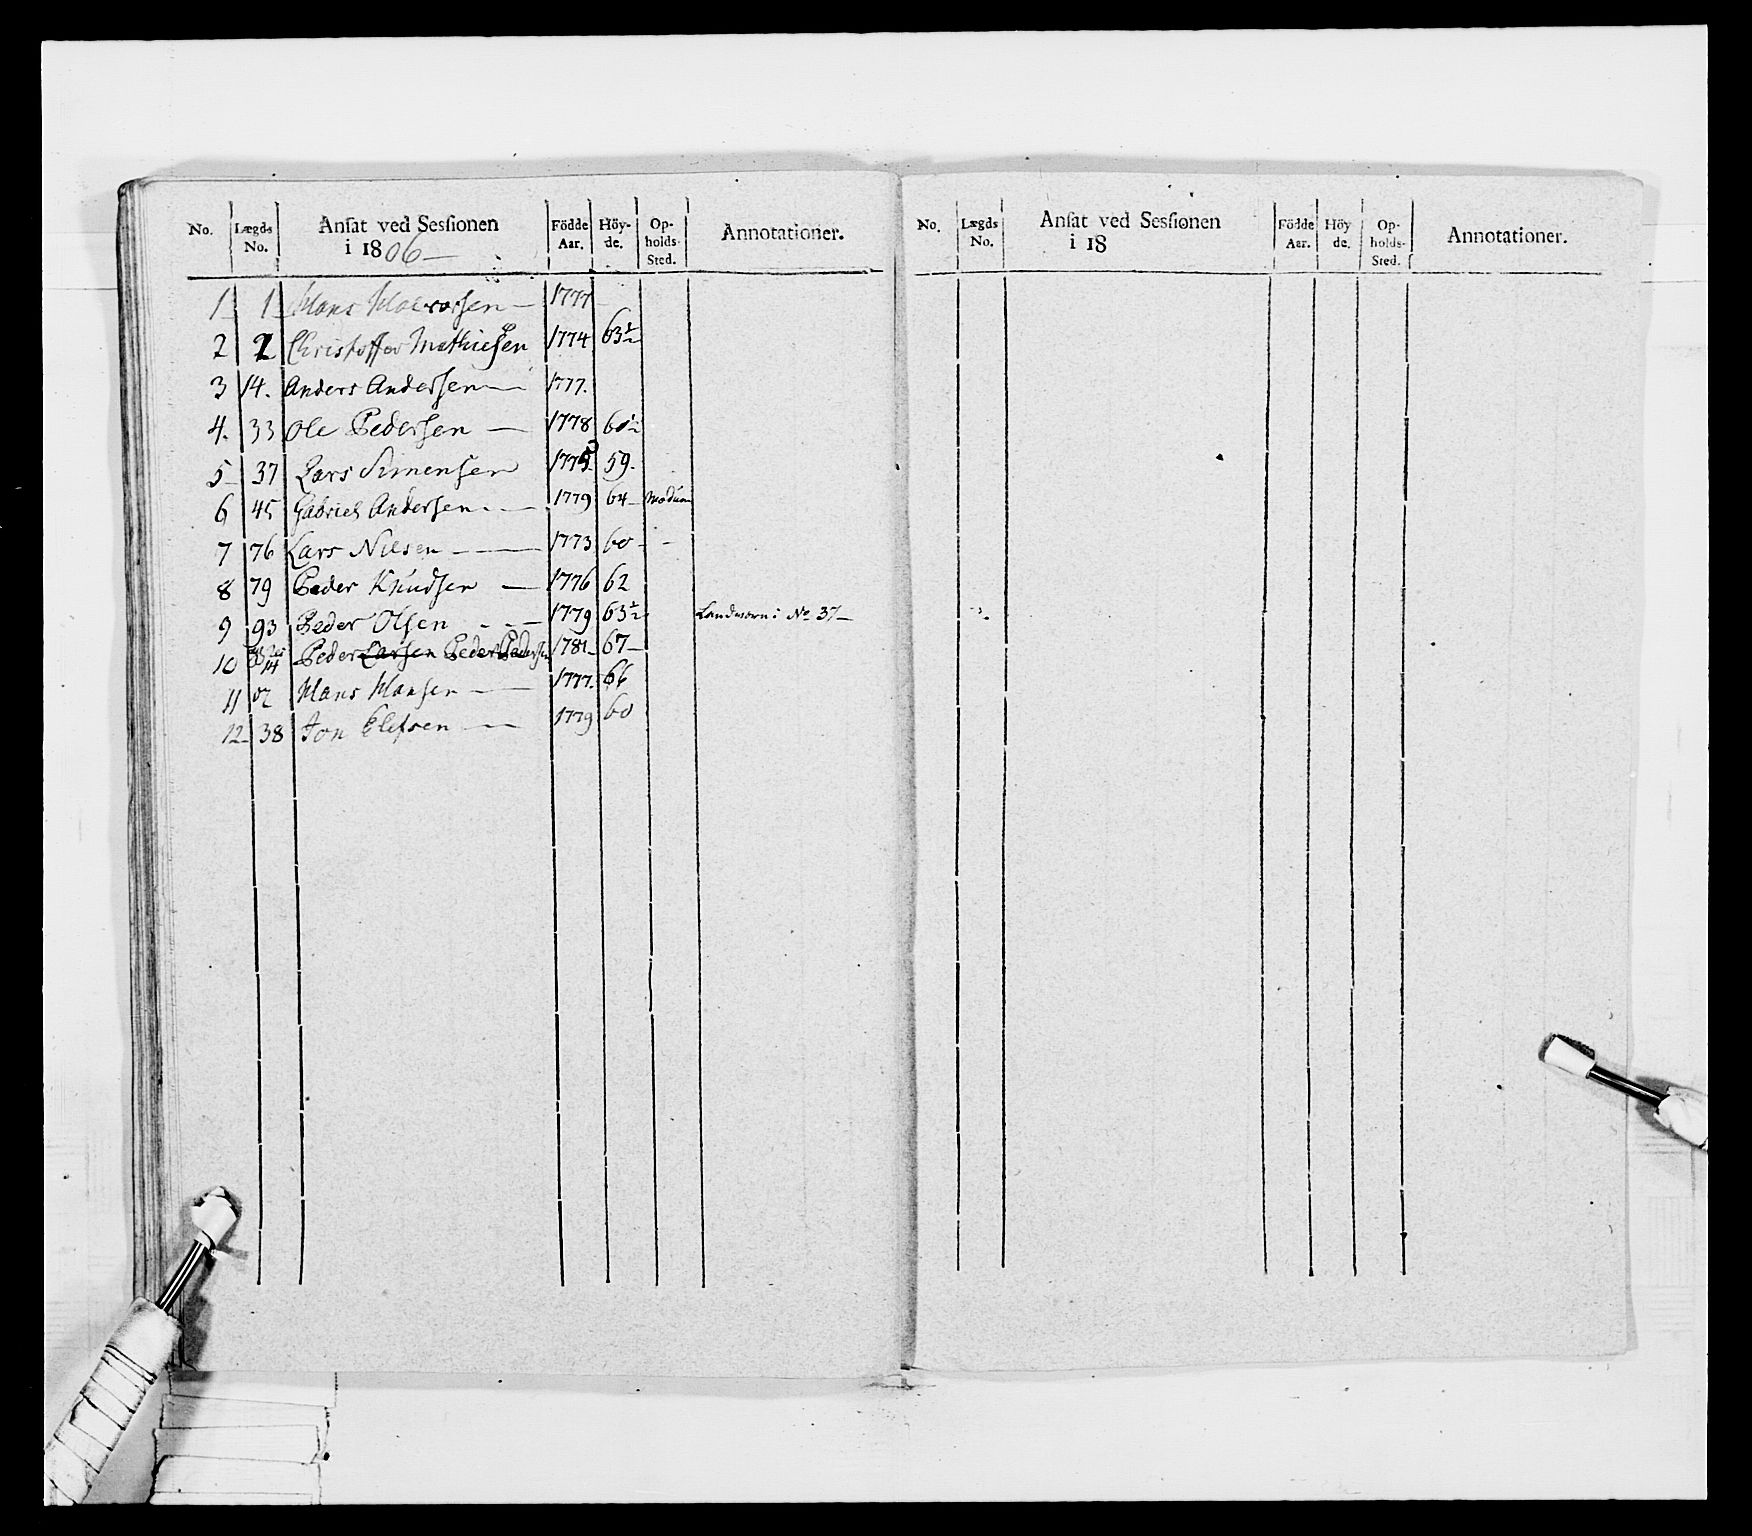 No. Lægds No. Ansat ved Sessionen i 1806 Födde Aar. Höy-de. Op-holds-Sted. Annotationer.
1 1 Hans Halvorsen 1777
2 2 Christoffer Mathiesen 1774 63½
3 14. Anders Andersen 1777.
4. 33 Ole Pedersen 1778
5 37 Lars Simensen 59.
6 45 Gabriel Andersen 1779 64 Modum
7 76 Lars Nilsen 1773 60
8 79 Peder Knudsen 1776 62
9 93 Peder Olsen 1779 63½ Landværn: No 37
10 14 Peder Larsen Peder Pedersen 1781 67
11 Hans Hansen 1777. 66
12 38 Jon Elefsen 1779 60
No. Lægds No. Ansat ved Sessionen i 18 Födde Aar. Höy de. Op-holds-Sted. Annotationer.